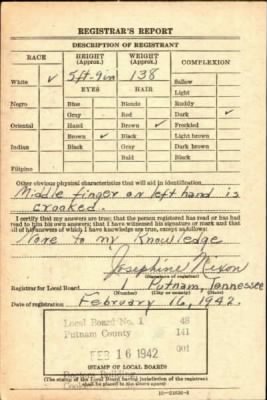 REGISTRAR'S REPORT
DESCRIPTION OF REGISTRANT
RACE HEIGHT (Approx.) WEIGHT (Approx.) COMPLEXION
White ✓ 5ft-9in 138 Sallow
EYES HAIR Light
Negro Blue Blonde Ruddy
Gray Red Dark ✓
Oriental Hazel Brown ✓ Freckled
Brown ✓ Black Light brown
Indian Black Gray Dark brown
Bald Black
Filipino
Other obvious physical characteristics that will aid in identification
Middle finger on left hand is
crooked.
I certify that my answers are true; that the person registered has read or has had
read to him his own answers; that I have witnessed his signature or mark and that
all of his answers of which I have knowledge are true, except as follows:
None to my Knowledge
Josephine Nixon
(Signature of registrar)
Registrar for Local Board Putnam, Tennessee
(Number) (City or county) (State)
Date of registration February 16, 1942.
Local Board No. 1 48
Putnam County 141
FEB 16 1942 001
(STAMP OF LOCAL BOARD)
(The stamp of the Local Board having jurisdiction of the registrant
shall be placed in the above space.)